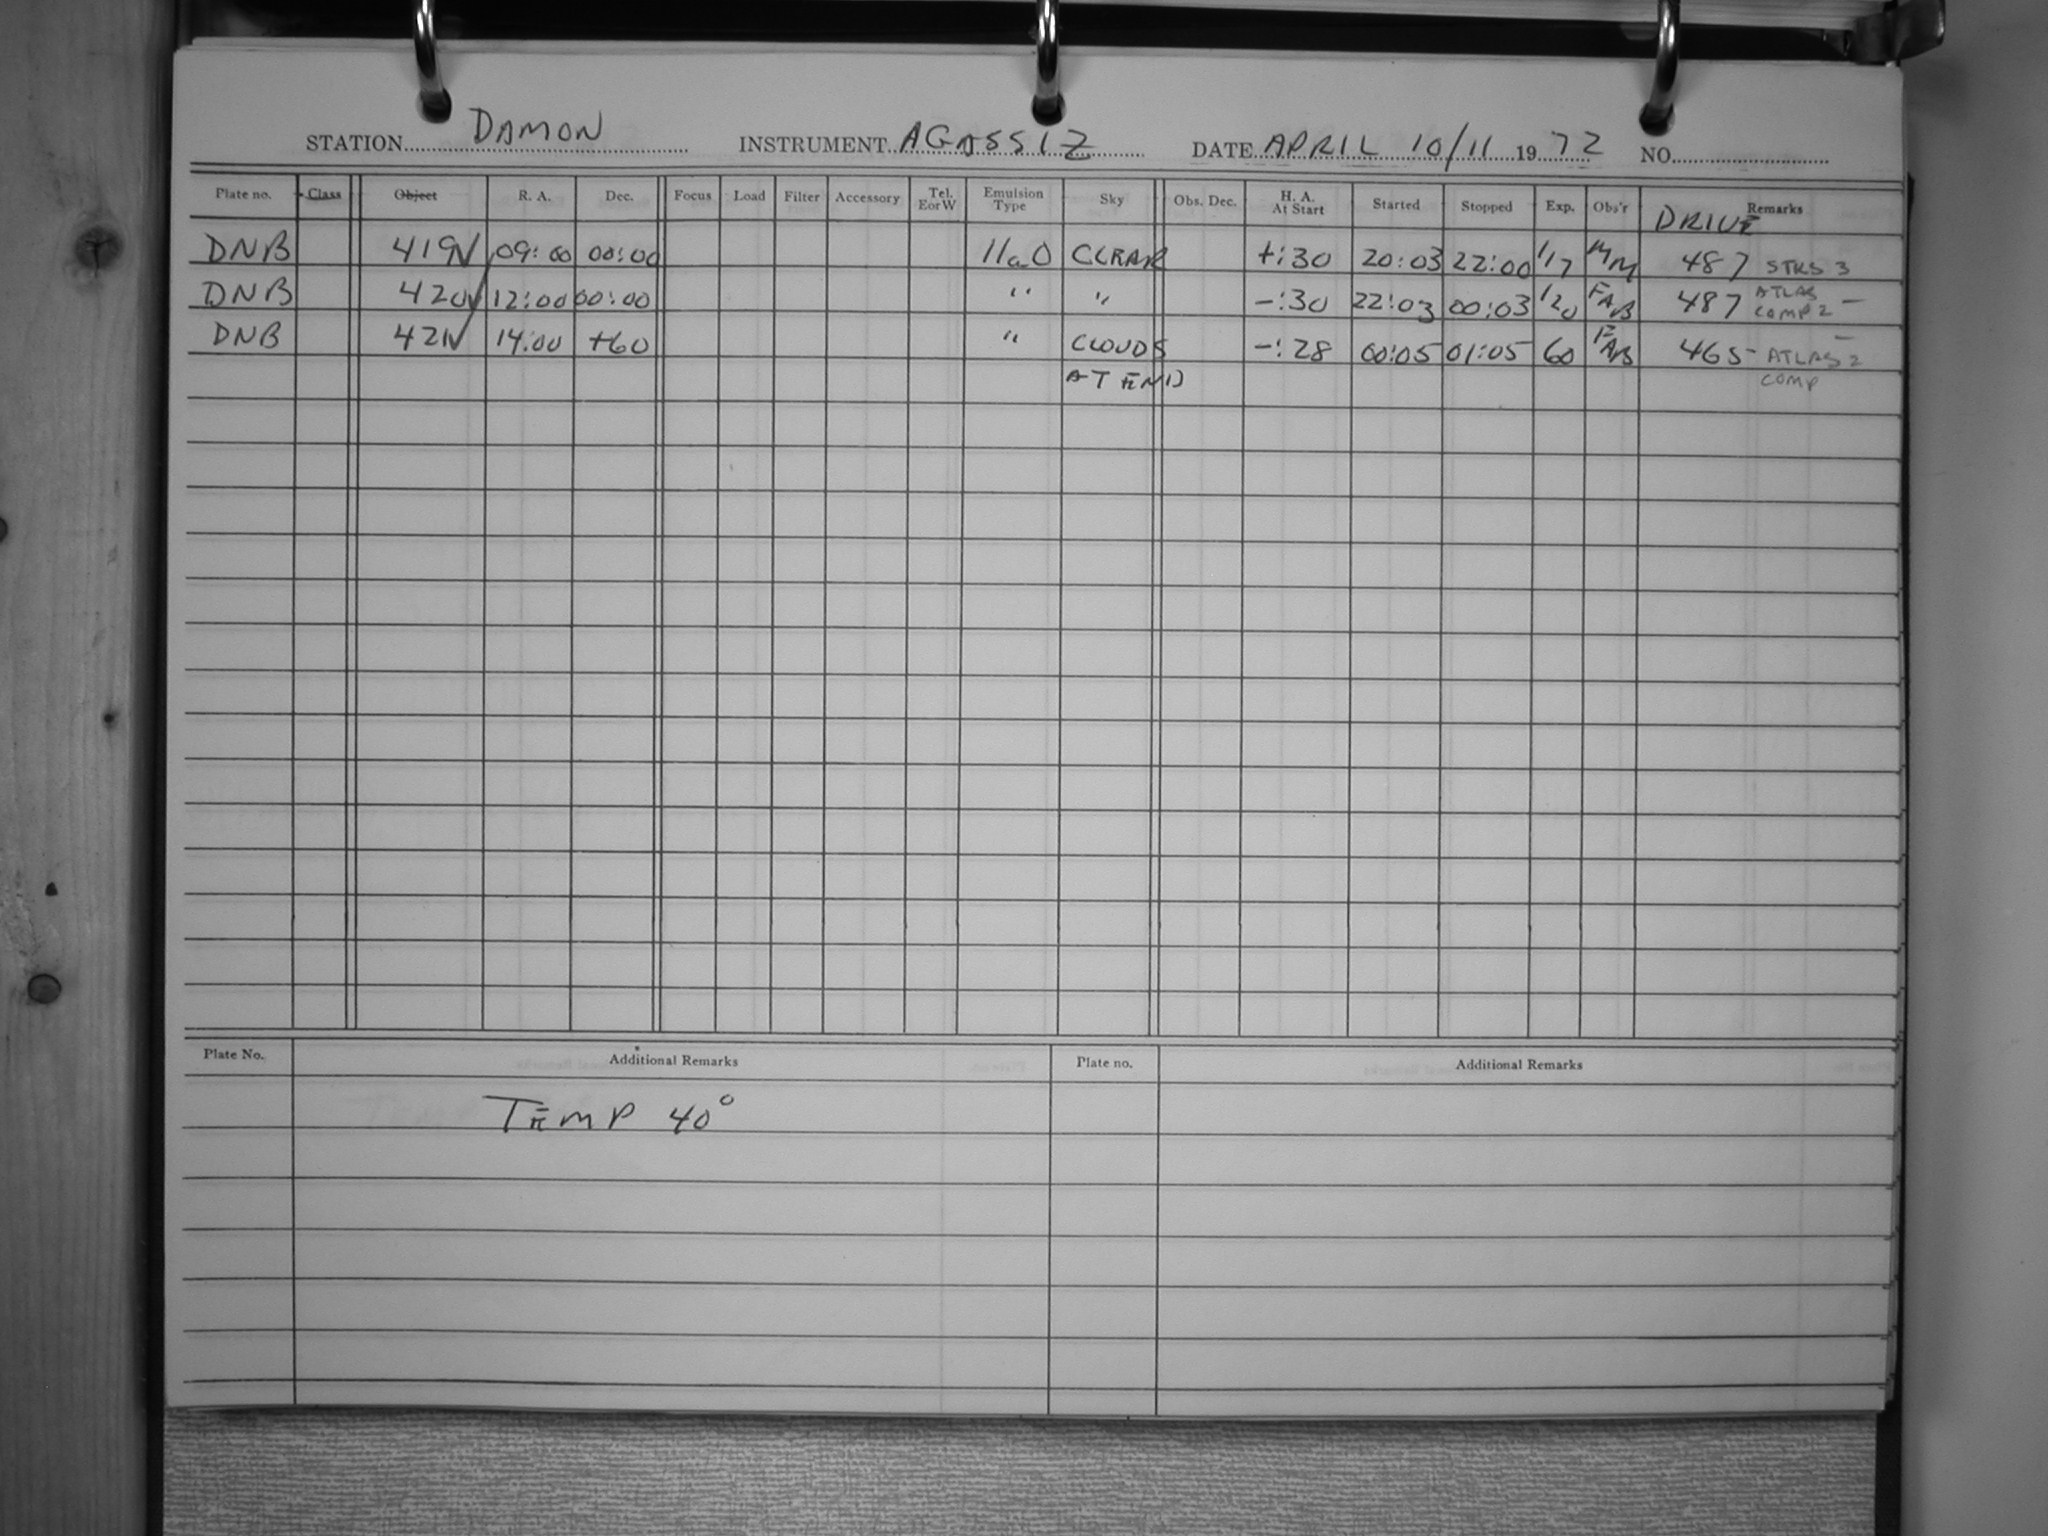 STATION DAMON INSTRUMENT AGASSIZ DATE APRIL 10/11 1972 NO.
Plate no. Class Object R. A. Dec. Focus Load Filter Accessory Tel. E or W Emulsion Type Sky Obs. Dec. H. A. At Start Started Stopped Exp. Obs'r DRIVE Remarks
DNB 419 √ 09:00 00:00 IIaO CLEAR +:30 20:03 22:00 117 MM 487 STKS 3
DNB 420 √ 12:00 00:00 " " -:30 22:03 00:03 120 FAB 487 ATLAS COMP 2 —
DNB 421 √ 14:00 +60 " CLOUDS -:28 00:05 01:05 60 FAB 465 - ATLAS 2
AT END COMP
Plate No. Additional Remarks Plate no. Additional Remarks
TEMP 40°